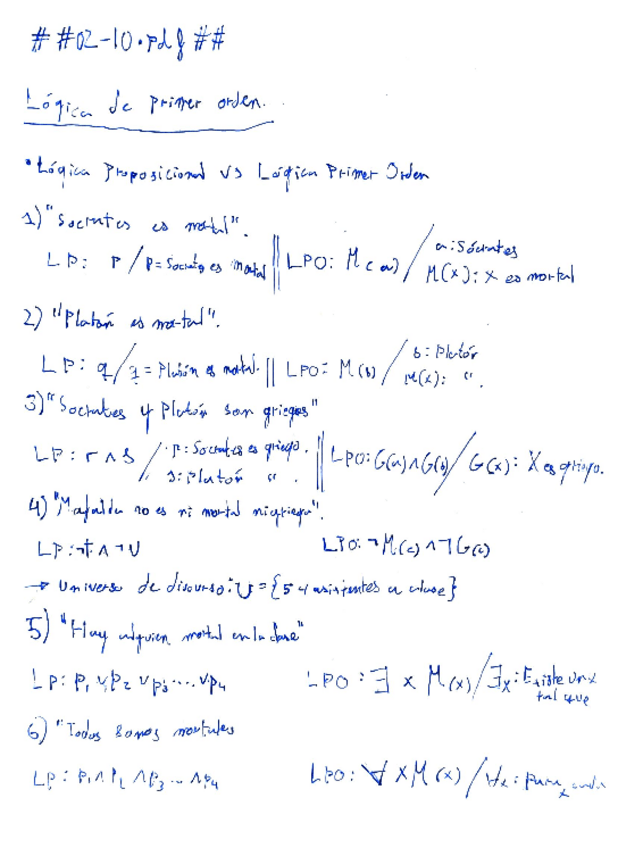 # #02-10.pdf ##
Lógica de primer orden.
• Lógica Proposicional VS Lógica Primer Orden
1) "Socrates es mortal".
LP: p / p = Socrates es mortal || LPO: M(a) / a: Sócrates
M(x): X es mortal
2) "Platón es mortal".
LP: q / q = Platón es mortal. || LPO: M(b) / b: Platón
M(x): “ .
3) "Socrates y Platón son griegos"
LP: r ∧ s / r: Socrates es griego. || LPO: G(a) ∧ G(b) / G(x): X es griego.
s: Platón “ .
4) "Mafalda no es ni mortal ni griega".
LP: ¬t ∧ ¬u LPO: ¬M(c) ∧ ¬G(c)
→ Universo de discurso: U = {54 asistentes a clase}
5) "Hay alguien mortal en la clase"
LP: p₁ ∨ p₂ ∨ p₃ ... ∨ p₄ LPO: ∃ x M(x) / ∃x: Existe un x
tal que
6) "Todos somos mortales
LP: p₁ ∧ p₂ ∧ p₃ ... ∧ p₄ LPO: ∀ x M(x) / ∀x: para cada
x